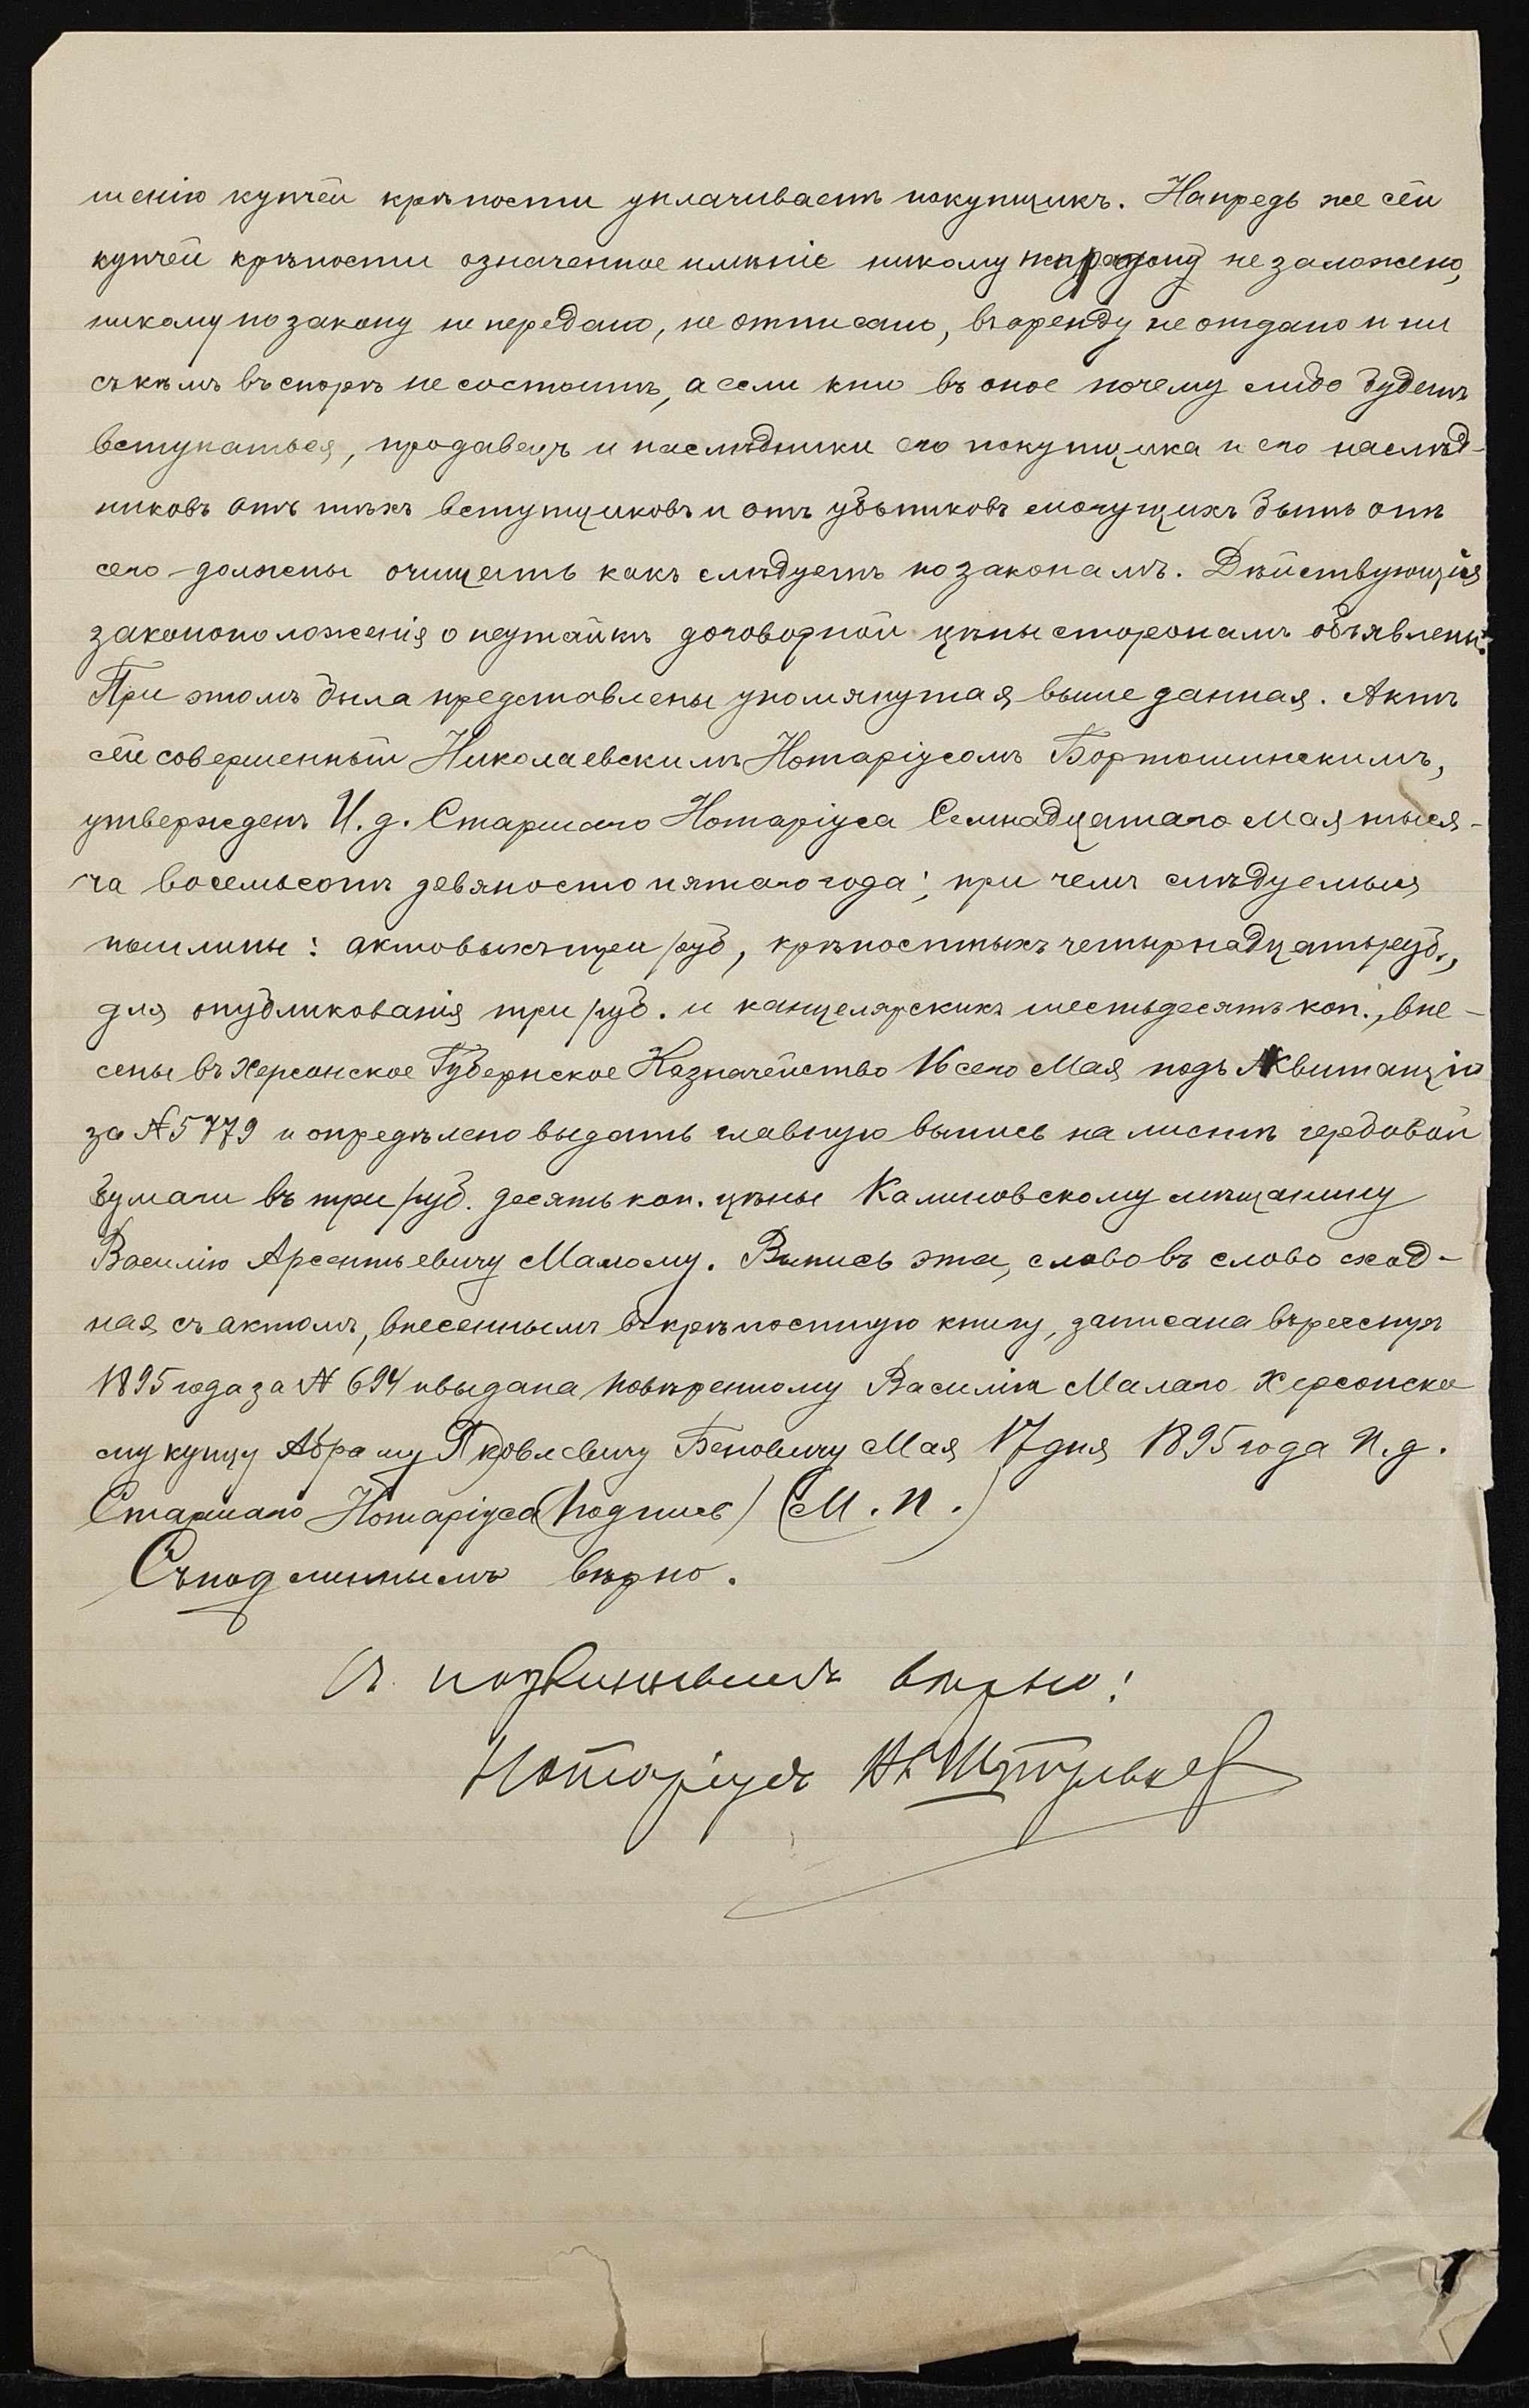 шенію купчей крѣпости уплачиваетъ покупщикъ. Напредь же сей
купчей крѣпости означенное имѣніе никому не продано не заложено,
никому по закону не передано, не отписано, въ аренду не отдано и ни
съ кѣмъ въ спорѣ не состоитъ, а если кто въ оное почему либо будетъ
вступаться, продавецъ и наслѣдники его покупщика и его наслѣд-
никовъ отъ тѣхъ вступщиковъ и отъ убытковъ могущихъ быть отъ
сего должены очищать какъ слѣдуетъ по законамъ. Дѣйствующія
законоположенія о неутайкѣ договорной цѣны сторонамъ объявлены.
При этомъ была представлены упомянутая выше данная. Актъ
сей совершенный Николаевскимъ Нотаріусомъ Бортошинскимъ,
утвержденъ И. д. Старшаго Нотаріуса Семнадцатаго Мая тыся-
ча восемьсотъ девяносто пятаго года; при чемъ слѣдуемыя
пошлины: актовыхъ три руб, крѣпостныхъ четырнадцать руб.,
для опубликованія три руб. и канцелярскихъ шестьдесять коп., вне-
сены въ Херсонское Губернское Казначейство 16 сего Мая подъ Квитанцію
за № 5779 и опредѣлено выдать главную выпись на листѣ гербовой
бумаги въ три руб. десять коп. цѣны Калиновскому мѣщанину
Василію Арсентьевичу Малому. Выпись эта, слово въ слово сход-
ная съ актомъ, внесеннымъ въ крѣпостную книгу, записана въ реестръ
1895 года за № 694 и выдана повѣренному Василія Малаго Херсонско
му купцу Абраму Яковлевичу Беновичу Мая 17 дня 1895 года И. д.
Старшаго Нотаріуса (подпись) (М. П.)
Съ подлиннымъ вѣрно.
Съ подлиннымъ вѣрно:
Нотаріусъ